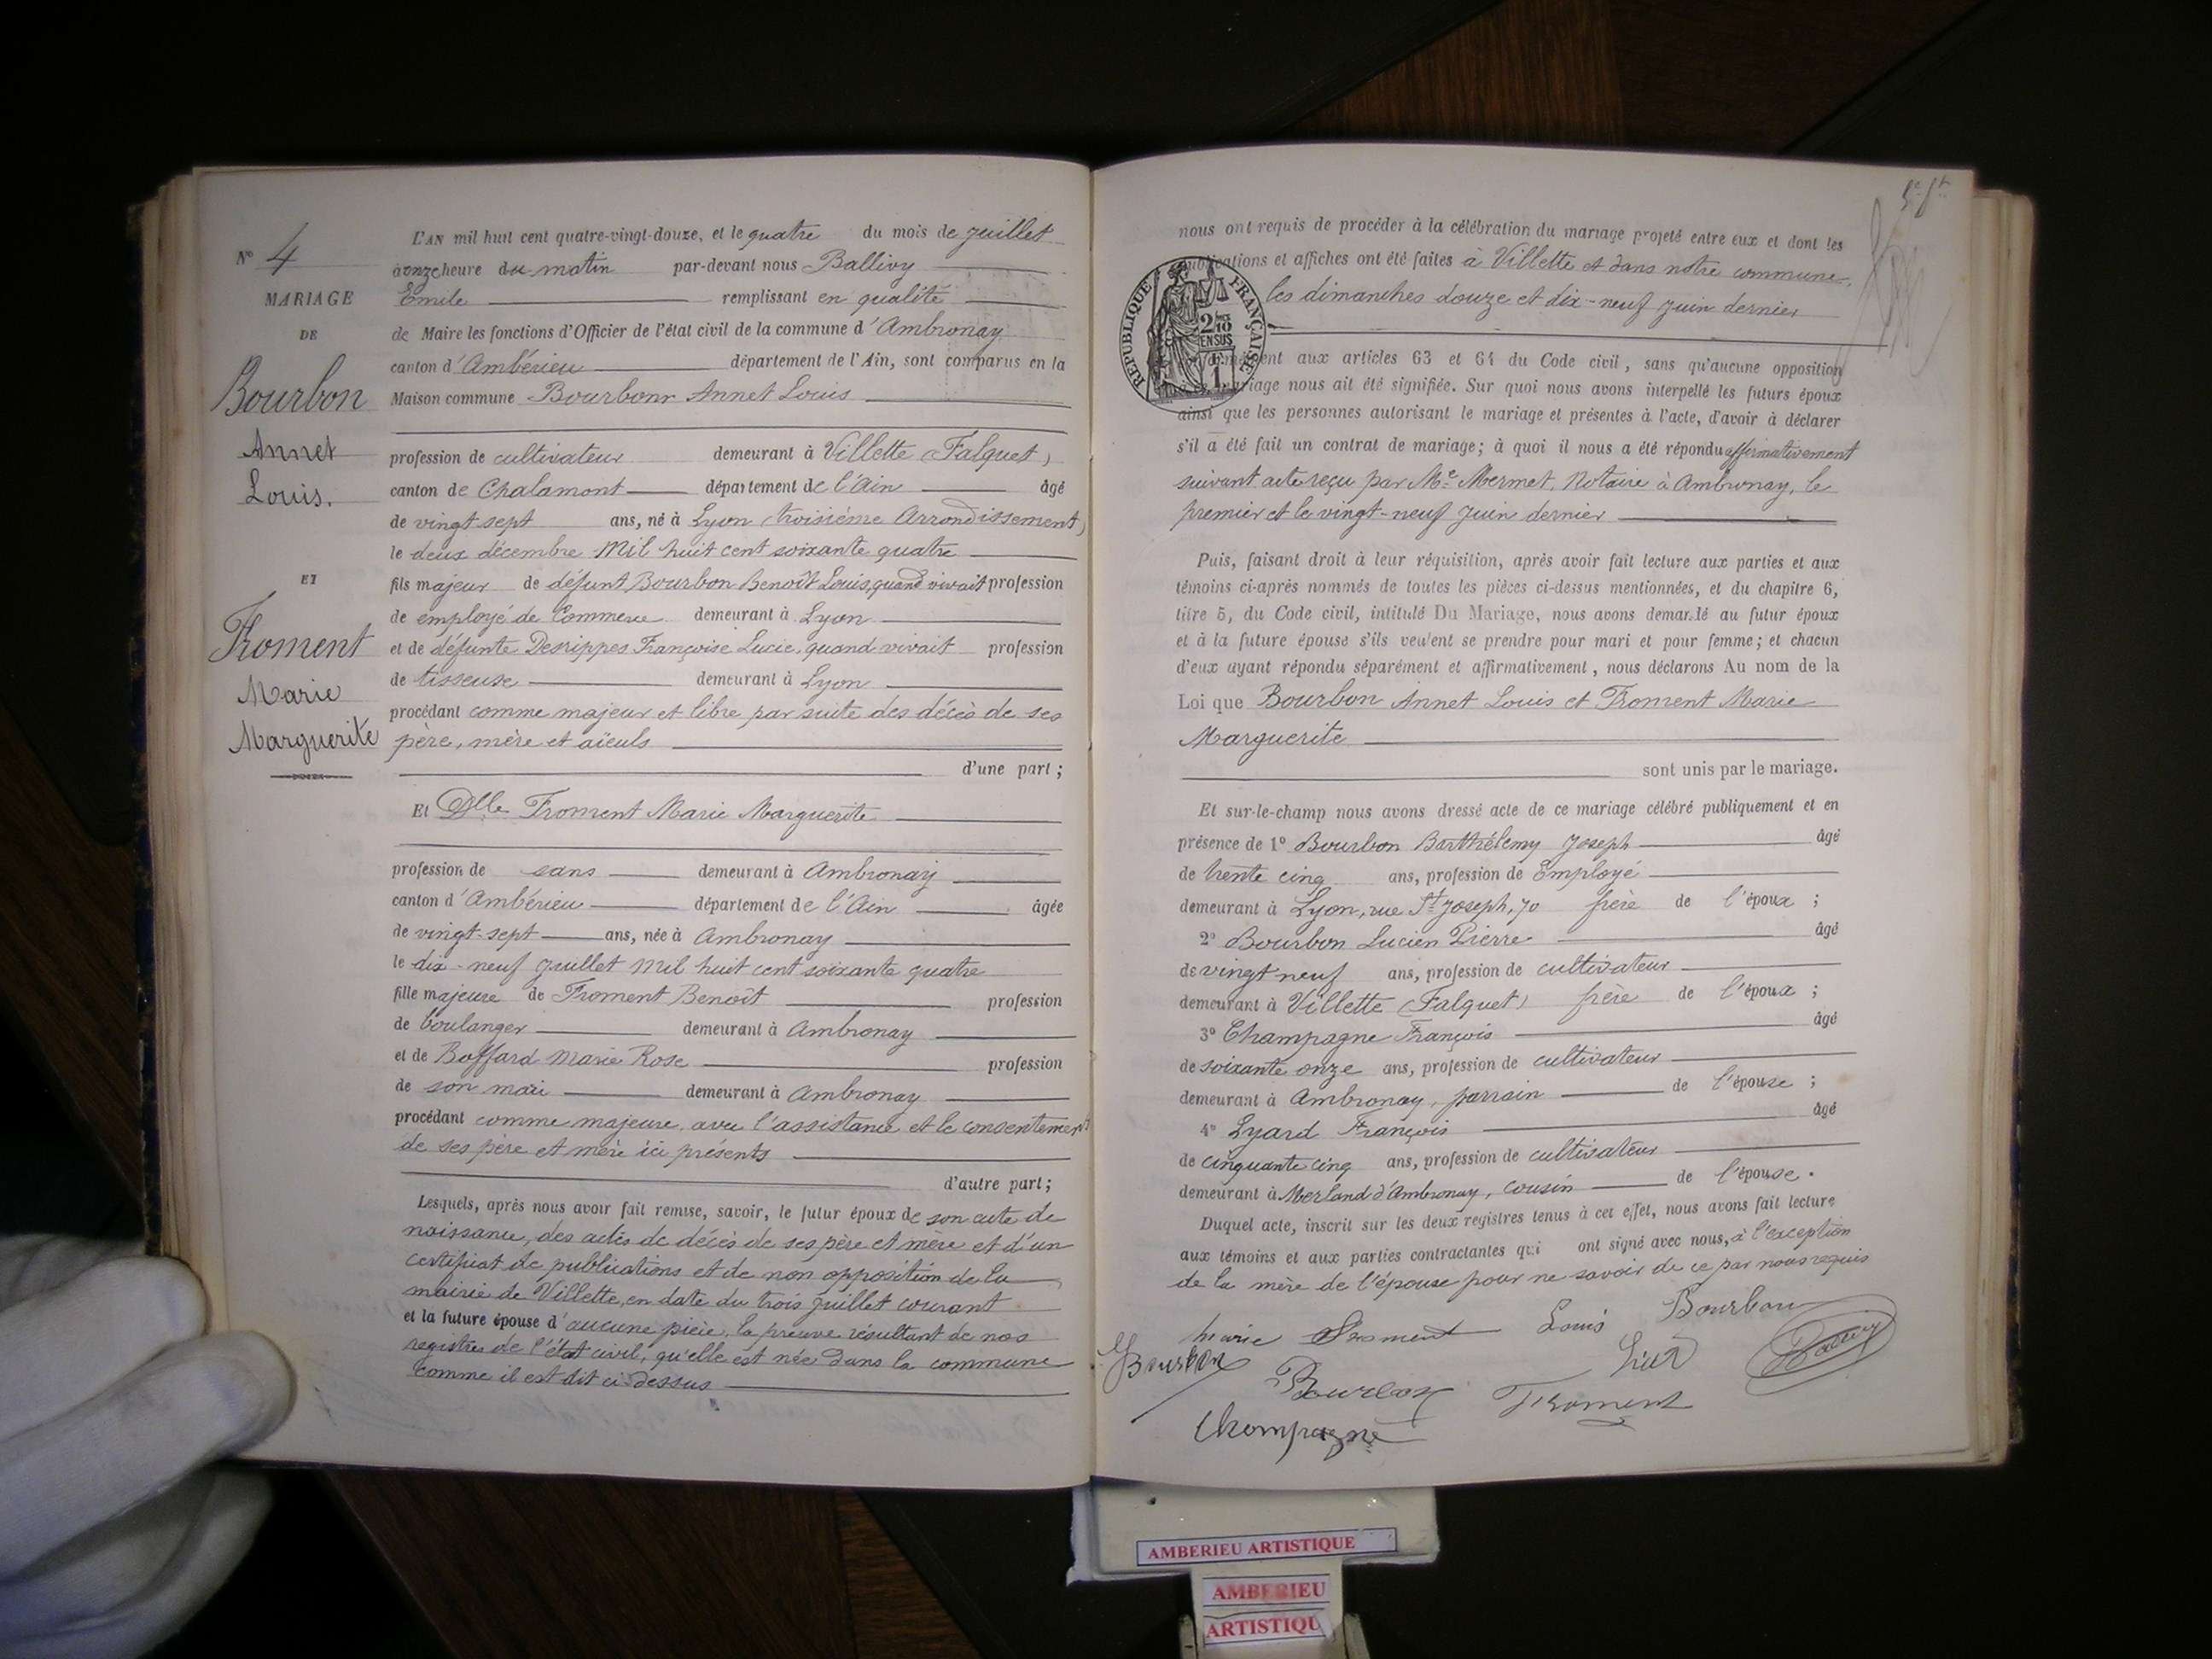 Nº 4
MARIAGE
DE
Bourbon
Annet
Louis.
ET
Froment
Marie
Marguerite
L'AN mil huit cent quatre-vingt-douze, et le quatre du mois de juillet
à onze heure du matin par-devant nous Ballivy
Emile remplissant en qualité
de Maire les fonctions d'Officier de l'état civil de la commune d'Ambronay
canton d'Ambérieu département de l'Ain, sont comparus en la
Maison commune Bourbonr Annet Louis
profession de cultivateur demeurant à Villette (Falquet)
canton de Chalamont département de l'Ain âgé
de vingt sept ans, né à Lyon (troisième Arrondissement)
le deux décembre mil huit cent soixante quatre
fils majeur de défunt Bourbon Benoît Louis, quand vivait profession
de employé de Commerce demeurant à Lyon
et de défunte Desrippes Françoise Lucie, quand vivait profession
de tisseuse demeurant à Lyon
procédant comme majeur et libre par suite des décès de ses
père, mère et aïeuls
d'une part ;
Et Dlle Froment Marie Marguerite
profession de sans demeurant à Ambronay
canton d'Ambérieu département de l'Ain âgée
de vingt-sept ans, née à Ambronay
le dix-neuf juillet mil huit cent soixante quatre
fille majeure de Froment Benoît profession
de boulanger demeurant à Ambronay
et de Boffard Marie Rose profession
de son mari demeurant à Ambronay
procédant comme majeure, avec l'assistance et le consentement
de ses père et mère ici présents
d'autre part ;
Lesquels, après nous avoir fait remise, savoir, le futur époux de son acte de
naissance, des actes de décès de ses père et mère et d'un
certificat de publications et de non opposition de la
mairie de Villette, en date du trois juillet courant
et la future épouse d'aucune pièce, la preuve résultant de nos
registres de l'état civil, qu'elle est née dans la commune
comme il est dit ci-dessus
nous ont requis de procéder à la célébration du mariage projeté entre eux et dont les
publications et affiches ont été faites à Villette et dans notre commune,
les dimanches douze et dix-neuf juin dernier
RÉPUBLIQUE FRANÇAISE
2/10
EN SUS
1
aux articles 63 et 64 du Code civil, sans qu'aucune opposition
mariage nous ait été signifiée. Sur quoi nous avons interpellé les futurs époux
ainsi que les personnes autorisant le mariage et présentes à l'acte, d'avoir à déclarer
s'il a été fait un contrat de mariage ; à quoi il nous a été répondu affirmativement
suivant acte reçu par Me Mermet, Notaire à Ambronay, le
premier et le vingt-neuf juin dernier
Puis, faisant droit à leur réquisition, après avoir fait lecture aux parties et aux
témoins ci-après nommés de toutes les pièces ci-dessus mentionnées, et du chapitre 6,
titre 5, du Code civil, intitulé Du Mariage, nous avons demandé au futur époux
et à la future épouse s'ils veulent se prendre pour mari et pour femme ; et chacun
d'eux ayant répondu séparément et affirmativement, nous déclarons Au nom de la
Loi que Bourbon Annet Louis et Froment Marie
Marguerite
sont unis par le mariage.
Et sur-le-champ nous avons dressé acte de ce mariage célébré publiquement et en
présence de 1º Bourbon Barthélemy Joseph âgé
de trente cinq ans, profession de Employé
demeurant à Lyon, rue St Joseph, 70 frère de l'époux ;
2º Bourbon Lucien Pierre âgé
de vingt neuf ans, profession de cultivateur
demeurant à Villette (Falquet) frère de l'époux ;
3º Champagne François âgé
de soixante onze ans, profession de cultivateur
demeurant à Ambronay, parrain de l'épouse ;
4º Lyard François âgé
de cinquante cinq ans, profession de cultivateur
demeurant à Merland d'Ambronay, cousin de l'épouse.
Duquel acte, inscrit sur les deux registres tenus à cet effet, nous avons fait lecture
aux témoins et aux parties contractantes qui ont signé avec nous, à l'exception
de la mère de l'épouse pour ne savoir de ce par nous requis
Marie Froment Louis Bourbon
Bourbon
Bourbon Froment
Champagne
AMBERIEU ARTISTIQUE
AMBERIEU
ARTISTIQU